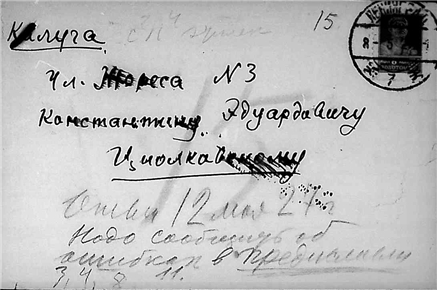 15
Калуга
Ул. Жореса № 3
Константину Эдуардовичу
Циолковскому
15
Ответ 12 мая 27 г
Надо сообщить об
ошибках в предисловии
3, 4, 8 11.